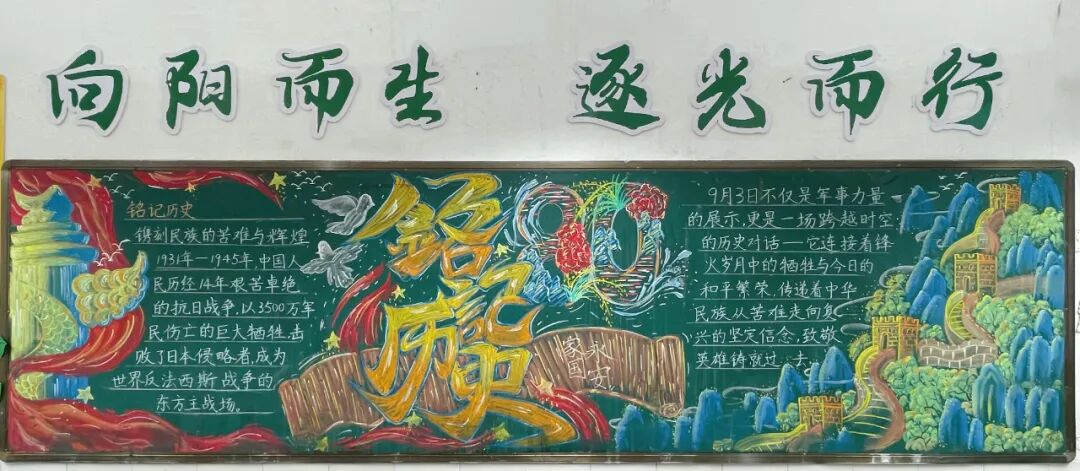 向阳而生 逐光而行
铭记历史
镌刻民族的苦难与辉煌
1931年—1945年,中国人
民历经14年艰苦卓绝
的抗日战争,以3500万军
民伤亡的巨大牺牲,击
败了日本侵略者,成为
世界反法西斯战争的
东方主战场。
铭记
历史
80
家国
永安
9月3日不仅是军事力量
的展示,更是一场跨越时空
的历史对话—它连接着锋
火岁月中的牺牲与今日的
和平繁荣,传递着中华
民族从苦难走向复
兴的坚定信念,致敬
英雄铸就过去